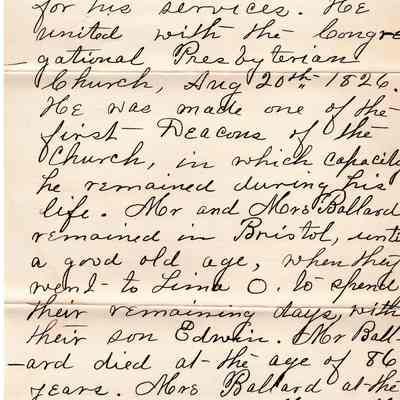 for his services. He
united with the Congre
-gational Presbyterian
Church, Aug 20th 1826.
He was made one of the
first Deacons of the
Church, in which capacity
he remained during his
life. Mr and Mrs Ballard
remained in Bristol, unti
a good old age, when they
went to Lima O. to spend
their remaining days with
their son Edwin. Mr Ball-
-ard died at the age of 86
years. Mrs Ballard at the